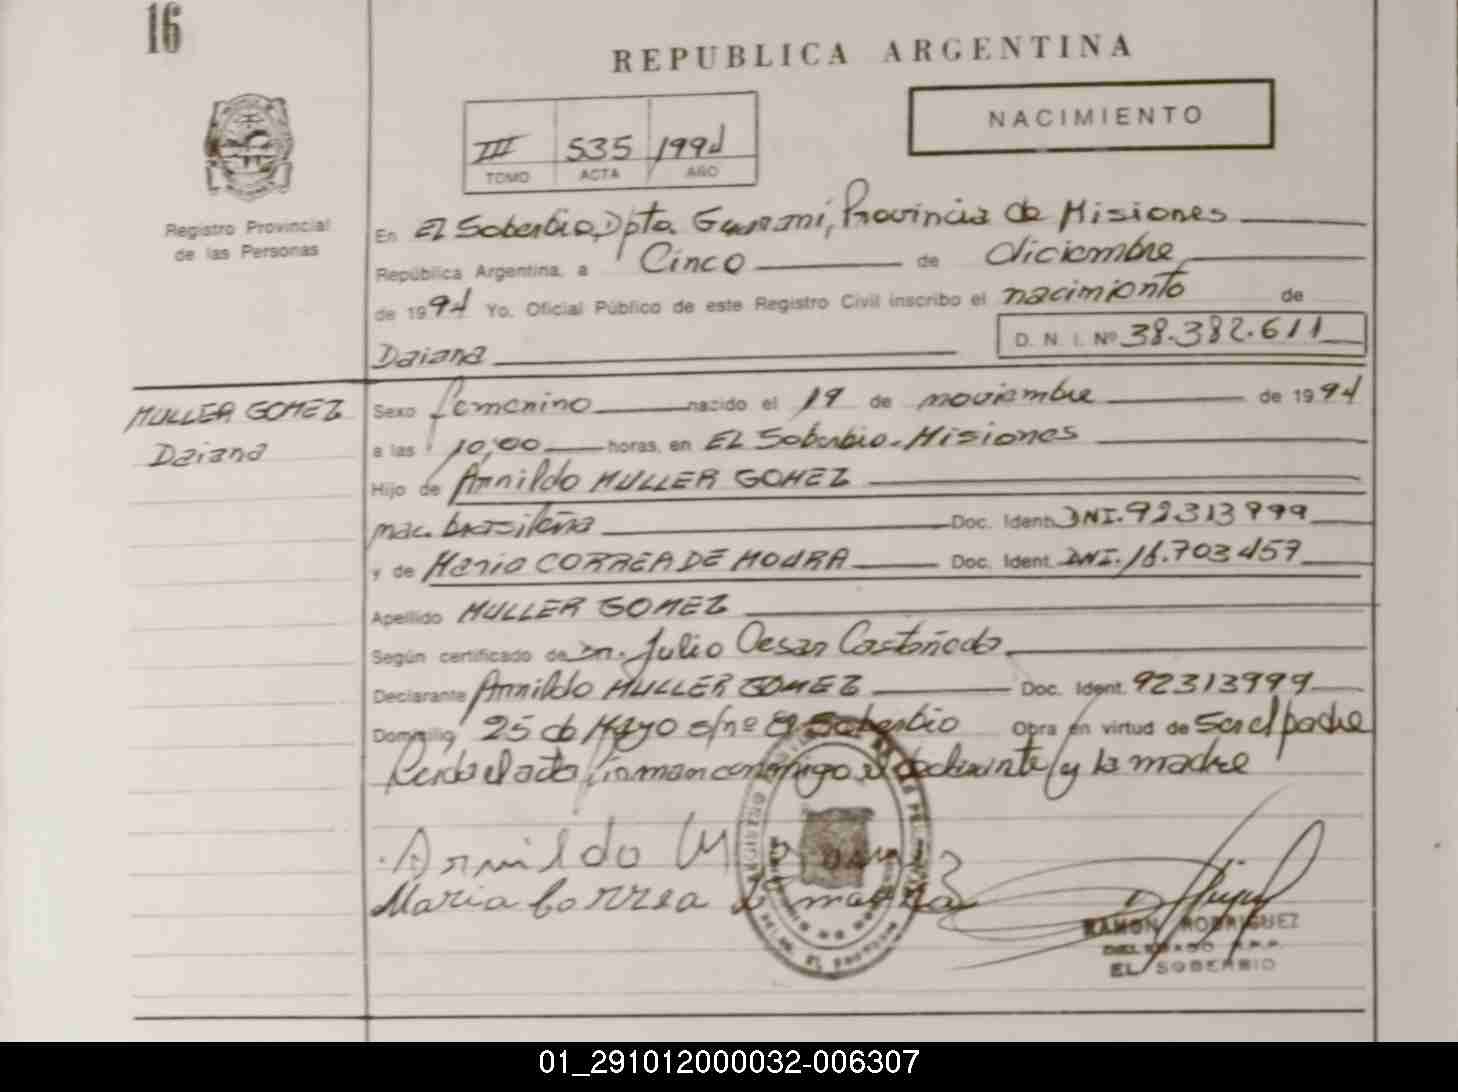 16
REPUBLICA ARGENTINA
NACIMIENTO
III 535 1994
TOMO ACTA AÑO
Registro Provincial
de las Personas
En El Soberbio, Dpto. Guarani, Provincia de Misiones
República Argentina, a Cinco de diciembre
de 1994 Yo, Oficial Público de este Registro Civil inscribo el nacimiento de
Daiana D. N. I. Nº 38.382.611
MULLER GOMEZ
Daiana
Sexo femenino nacido el 19 de noviembre de 1994
a las 10,00 horas, en El Soberbio-Misiones
Hijo de Arnildo MULLER GOMEZ
nac. brasileña Doc. Ident. DNI.92313999
y de Maria CORREA DE MOURA Doc. Ident. DNI.16.703457
Apellido MULLER GOMEZ
Según certificado de Dr. Julio Cesar Castañeda
Declarante Arnildo MULLER GOMEZ Doc. Ident. 92313999
Domicilio 25 de Mayo s/nº El Soberbio Obra en virtud de Ser el padre
Leida el acta firman conmigo el declarante y la madre
Arnildo M
Maria Correa de
RAMON RODRIGUEZ
EL SOBERBIO
01_291012000032-006307